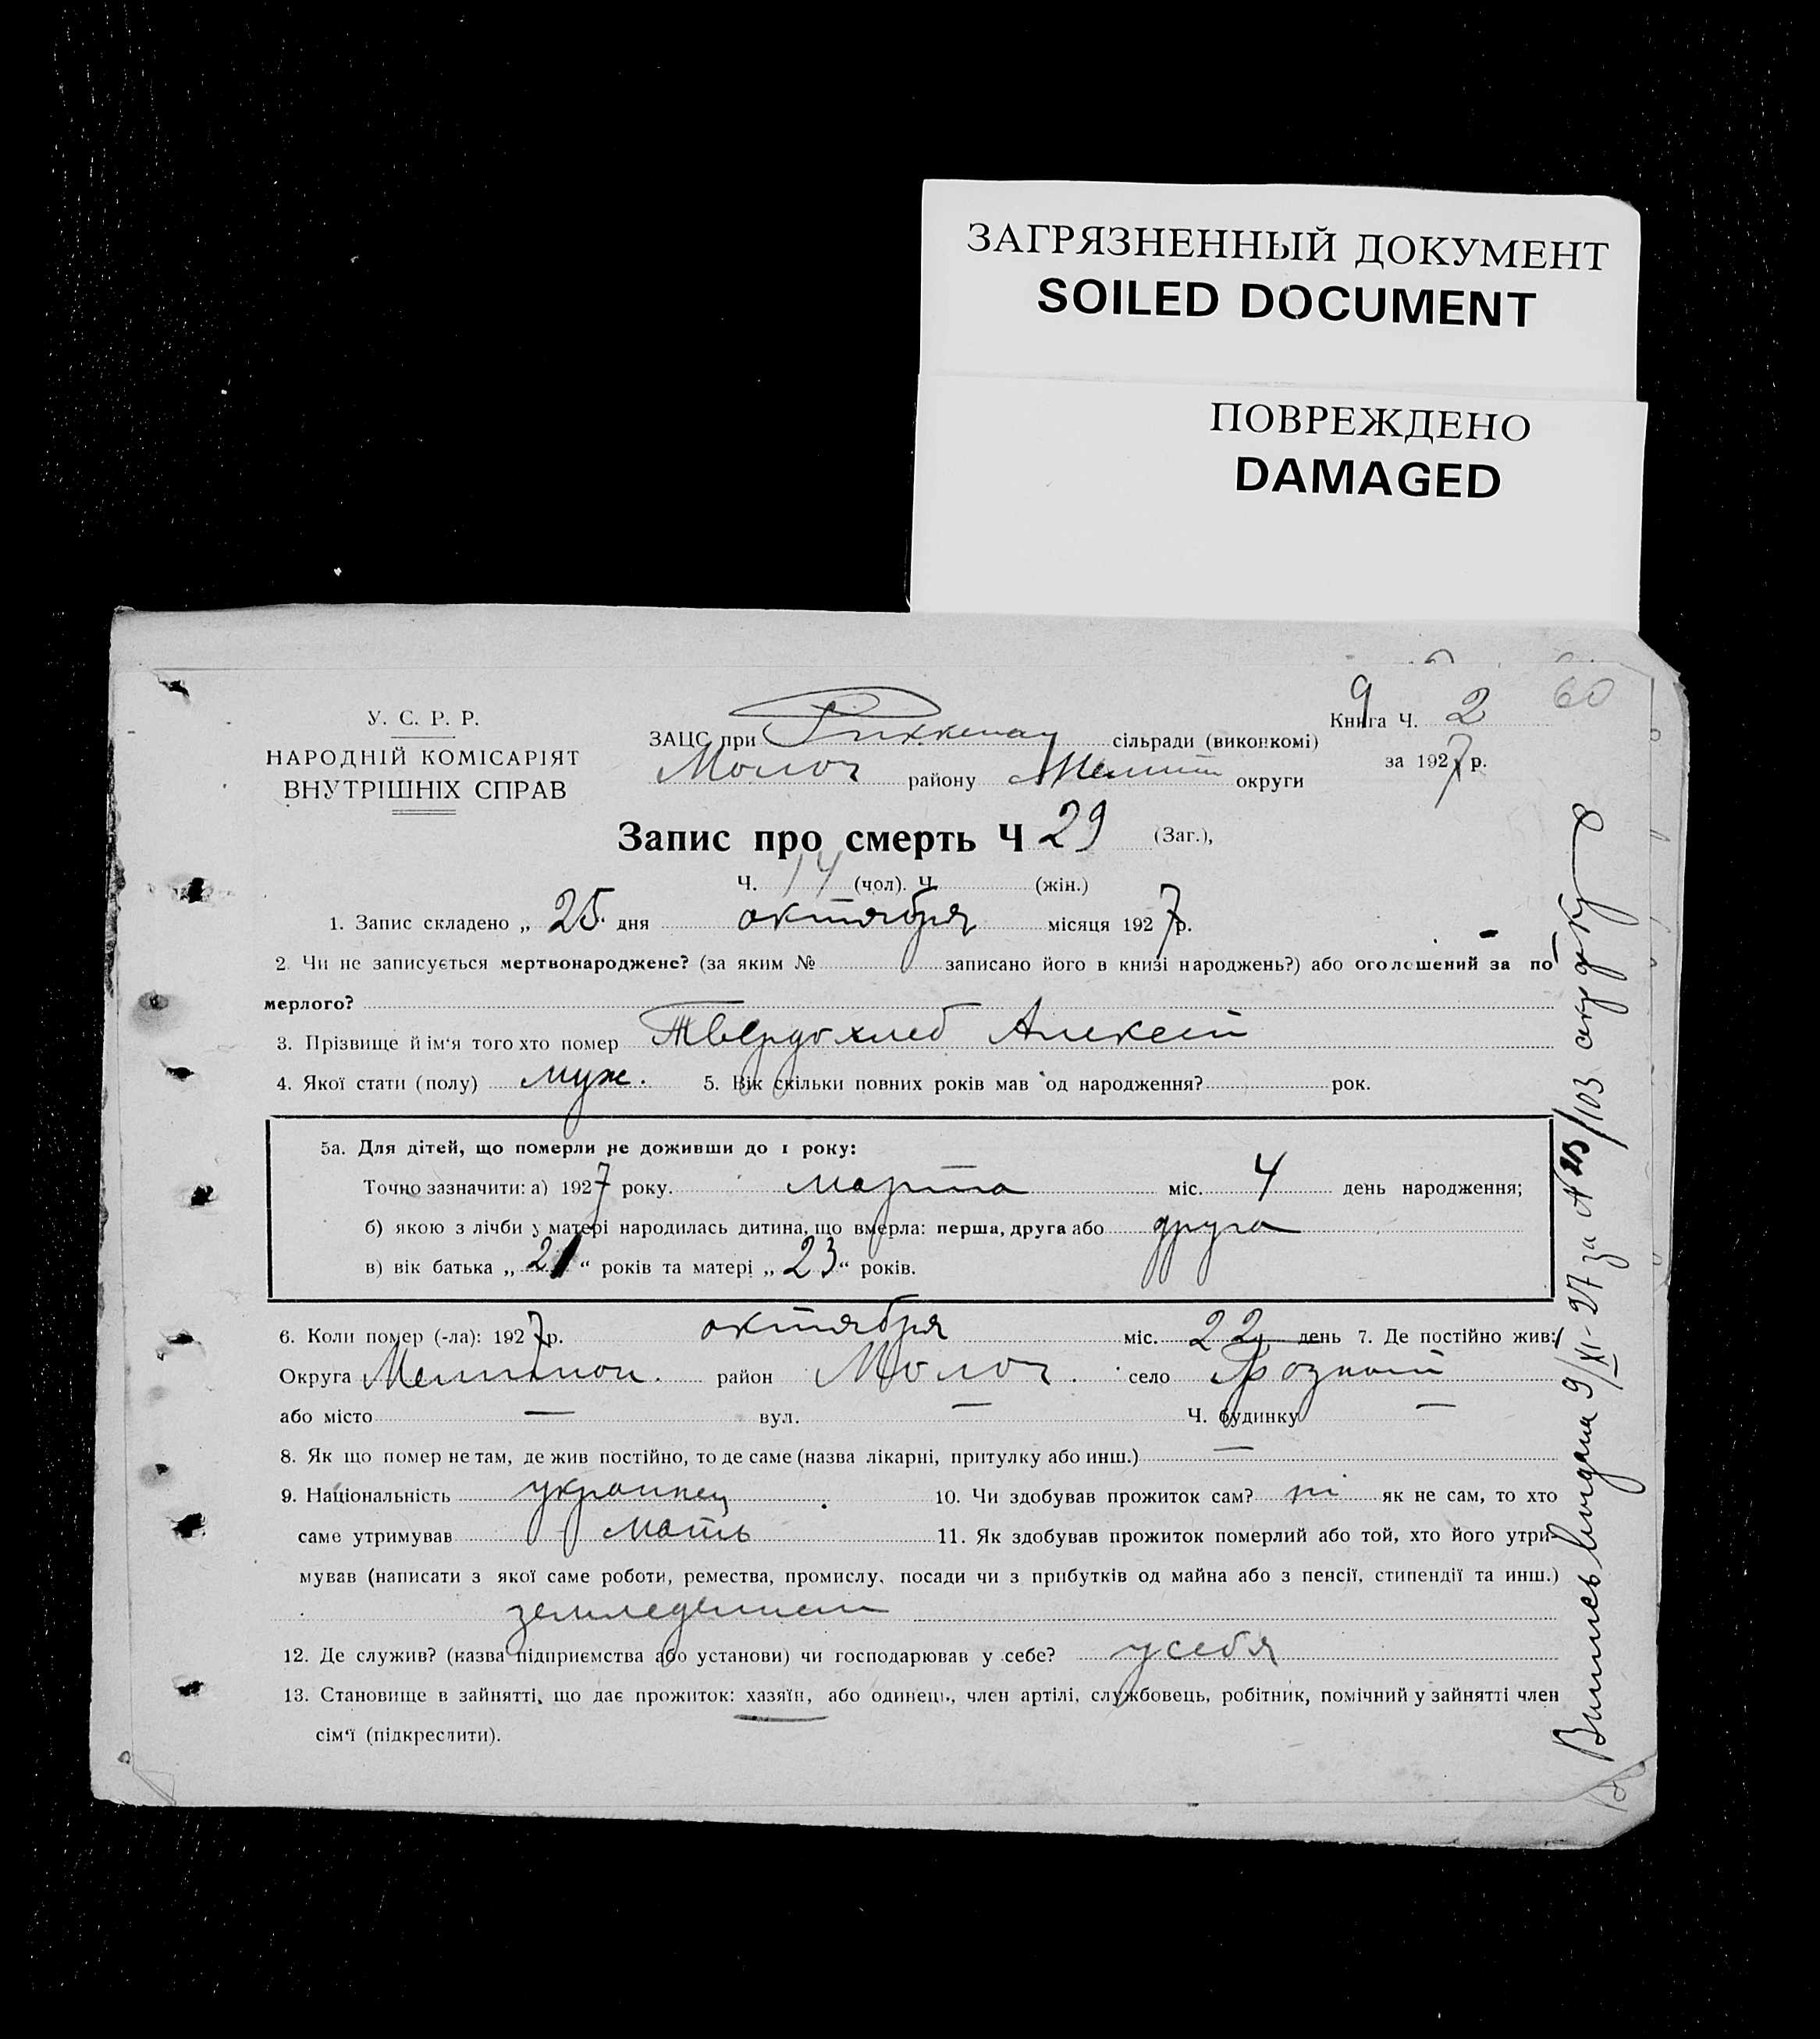 ЗАГРЯЗНЕННЫЙ ДОКУМЕНТ
SOILED DOCUMENT
ПОВРЕЖДЕНО
DAMAGED
60
9
У. С. Р. Р.
НАРОДНІЙ КОМІСАРІЯТ
ВНУТРІШНІХ СПРАВ
ЗАЦС при Риккенау сільради (виконкомі)
Молоч району Мелит округи
Книга Ч. 2
за 1927 р.
Запис про смерть Ч 29 (Заг.),
Ч. 14 (чол). Ч. (жін.)
1. Запис складено „ 25 дня октября місяця 1927 р.
2. Чи не записується мертвонароджене? (за яким № записано його в книзі народжень?) або оголошений за по
мерлого?
3. Прізвище й ім'я того хто помер Твердохлеб Алексей
4. Якої стати (полу) муж. 5. Вік скільки повних років мав од народження? рок.
5а. Для дітей, що померли не доживши до 1 року:
Точно зазначити: а) 1927 року. марта міс. 4 день народження;
б) якою з лічби у матері народилась дитина, що вмерла: перша, друга або друга
в) вік батька „ 21 “ років та матері „ 23 “ років.
6. Коли помер (-ла): 1927 р. октября міс. 22 день 7. Де постійно жив:
Округа Мелитопол. район Молоч. село
або місто — вул. — Ч. будинку —
8. Як що помер не там, де жив постійно, то де саме (назва лікарні, притулку або инш.) —
9. Національність украинец 10. Чи здобував прожиток сам? ні як не сам, то хто
саме утримував мать 11. Як здобував прожиток померлий або той, хто його утри-
мував (написати з якої саме роботи, ремества, промислу, посади чи з прибутків од майна або з пенсії, стипендії та инш.)
земледелием
12. Де служив? (назва підприємства або установи) чи господарював у себе? у себя
13. Становище в зайнятті, що дає прожиток: хазяїн, або одинець, член артілі, службовець, робітник, помічний у зайнятті член
сім'ї (підкреслити).
Выпись выдана 9/XI-27 за №